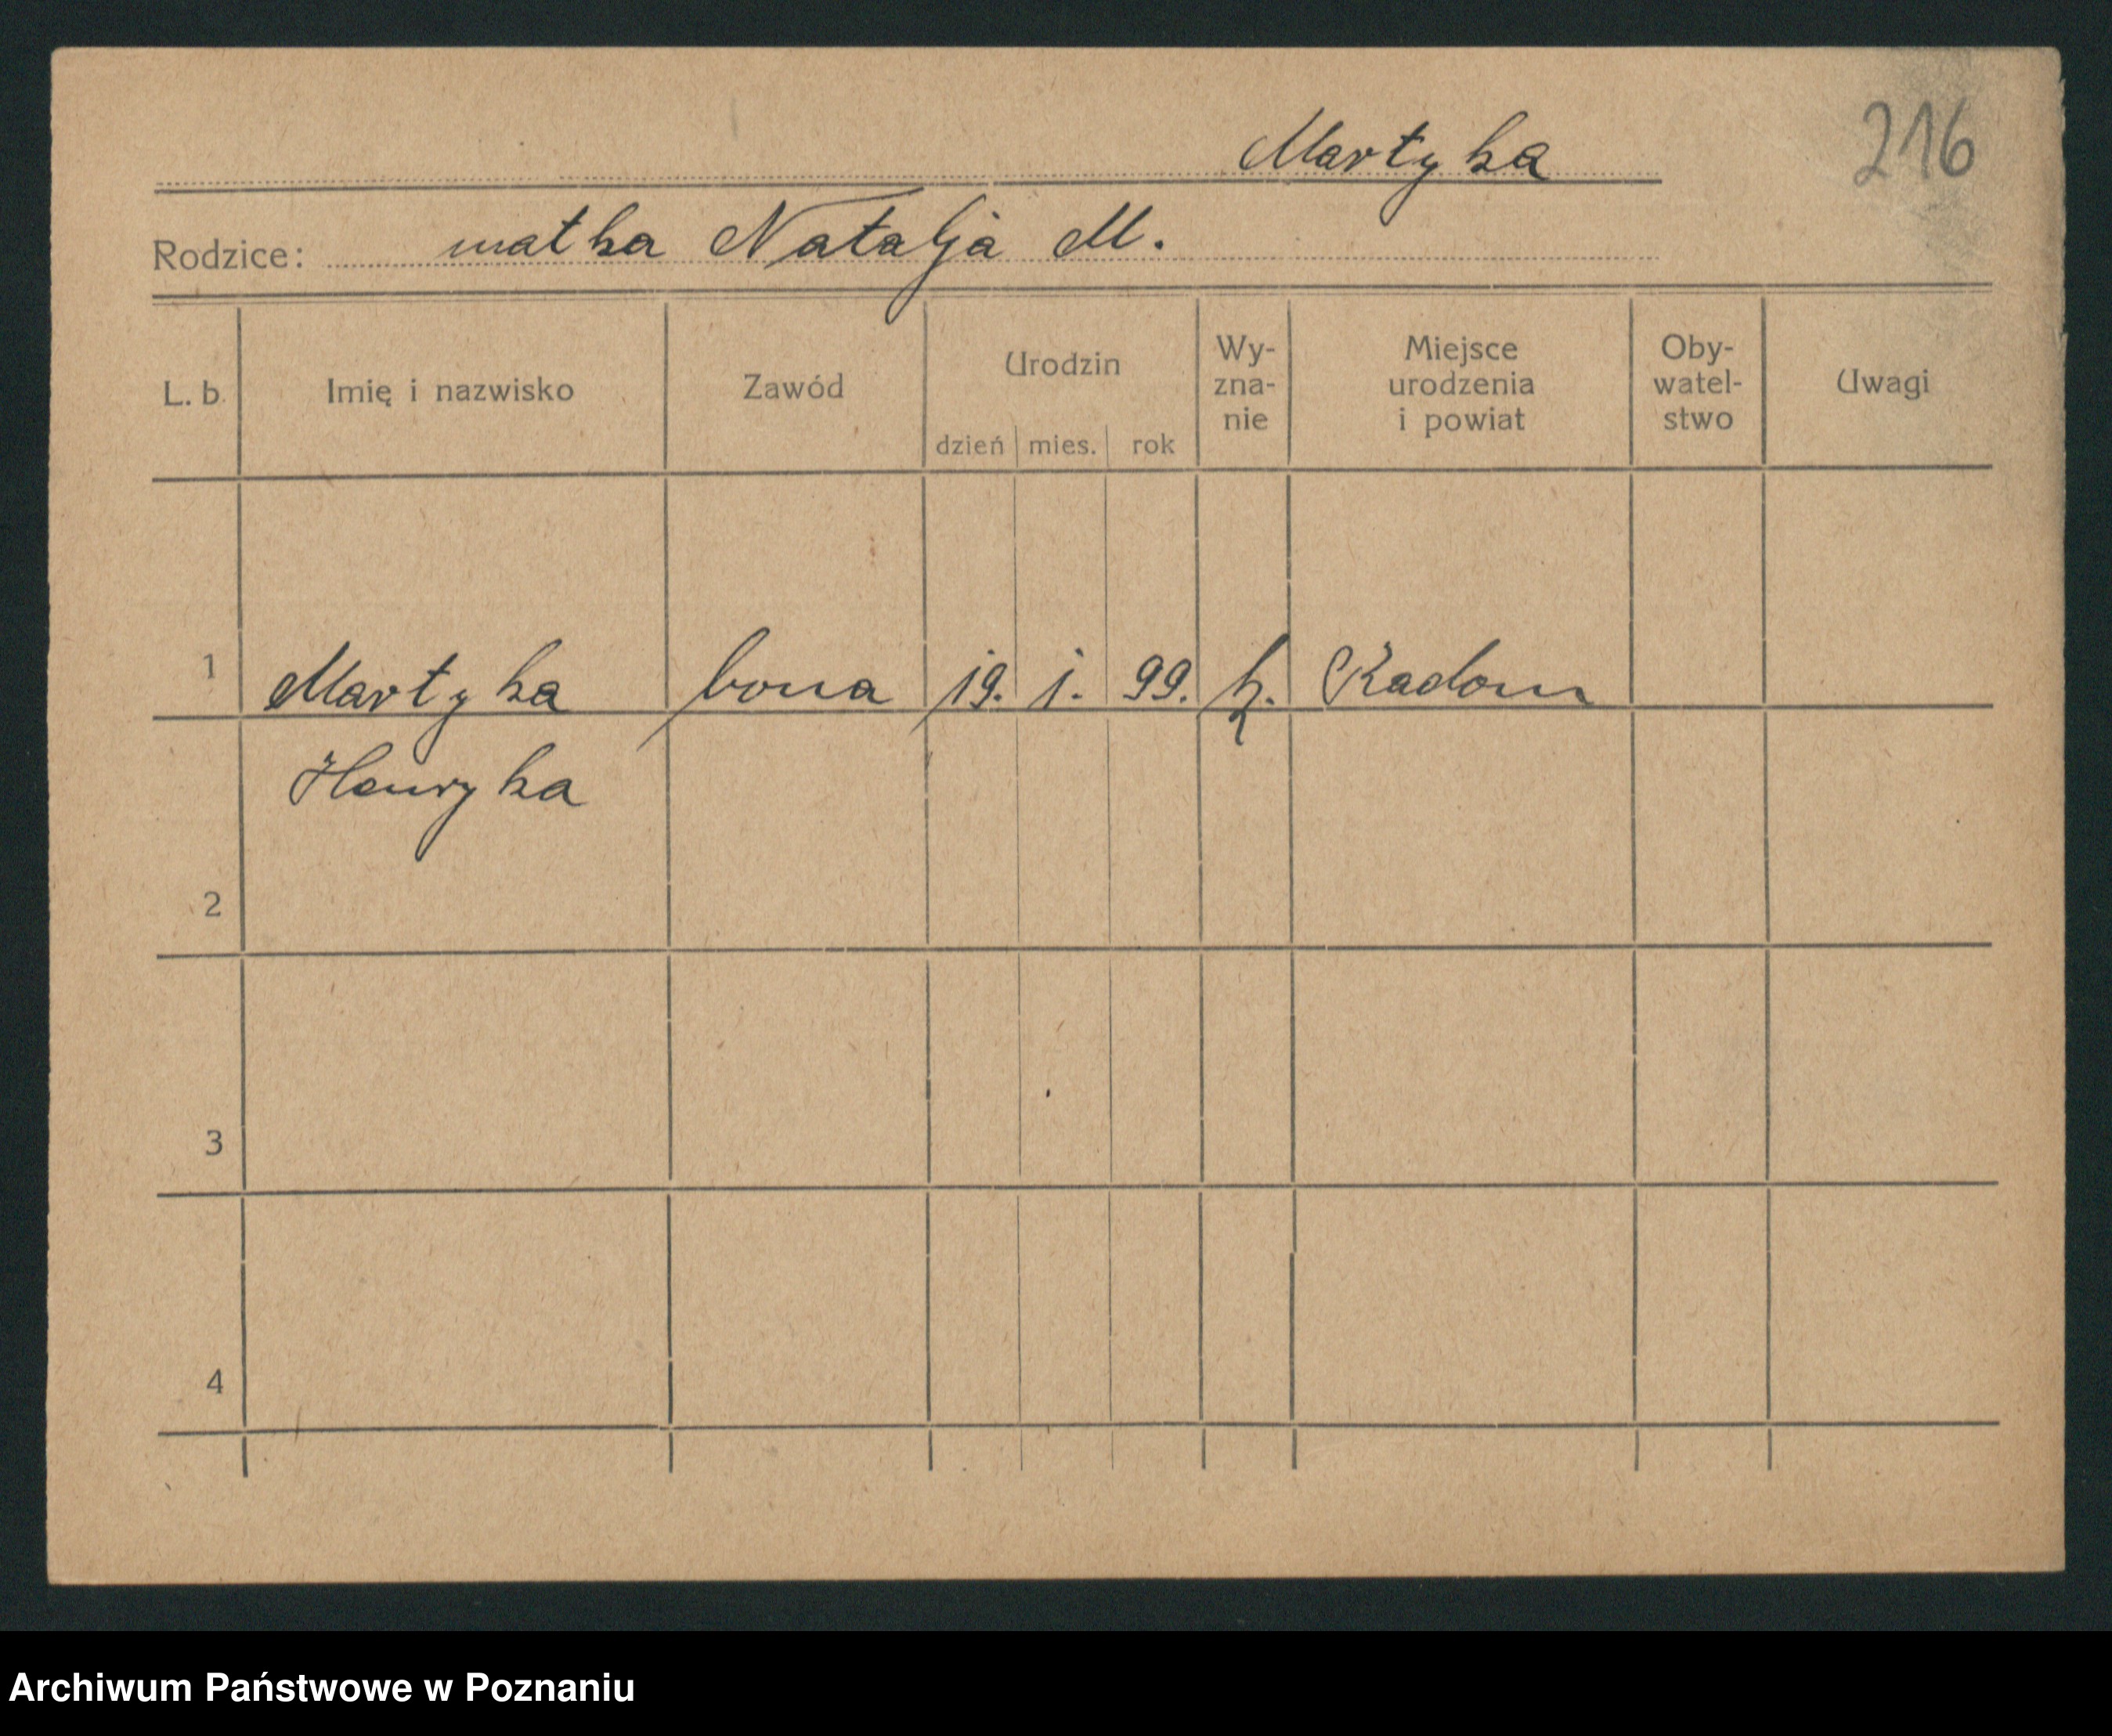 216
Martyka
Rodzice: matka Natalja M.
L. b. Imię i nazwisko Zawód Urodzin dzień mies. rok Wy- zna- nie Miejsce urodzenia i powiat Oby- watel- stwo Uwagi
1 Martyka bona 19. 1. 99. k. Radom
Henryka
2
3
4
Archiwum Państwowe w Poznaniu